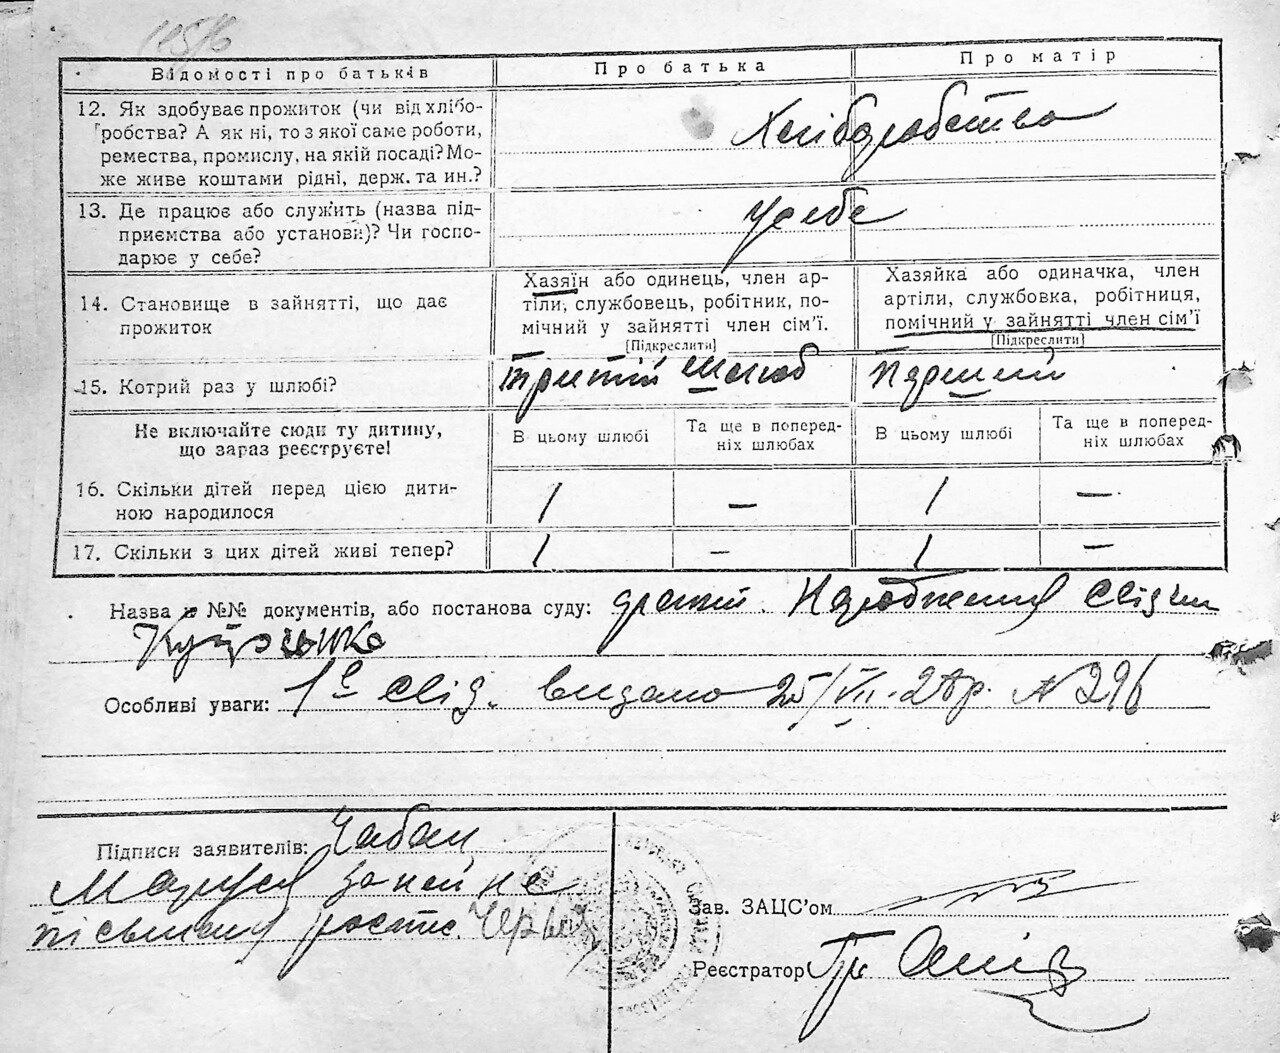 Відомості про батьків
Про батька
Про матір
12. Як здобуває прожиток (чи від хлібо-
робства? А як ні, то з якої саме роботи,
ремества, промислу, на якій посаді? Мо-
же живе коштами рідні, держ. та ин.?
Хліборобство
13. Де працює або служить (назва під-
приємства або установи)? Чи госпо-
дарює у себе?
У себе
14. Становище в зайнятті, що дає
прожиток
Хазяїн або одинець, член ар-
тіли, службовець, робітник, по-
мічний у зайнятті член сім'ї.
[Підкреслити]
Хазяйка або одиначка, член
артіли, службовка, робітниця,
помічний у зайнятті член сім'ї
[Підкреслити]
15. Котрий раз у шлюбі?
третій шлюб
перший
Не включайте сюди ту дитину,
що зараз реєструєте!
В цьому шлюбі
Та ще в поперед-
ніх шлюбах
В цьому шлюбі
Та ще в поперед-
ніх шлюбах
16. Скільки дітей перед цією дити-
ною народилося
1
—
1
—
17. Скільки з цих дітей живі тепер?
1
—
1
—
Назва й №№ документів, або постанова суду:
Особливі уваги: свід. видано 25/VII. 28р. № 296
Підписи заявителів: Чабан
Маруся за неї не
письменну ростис.
Зав. ЗАЦС'ом
Реєстратор